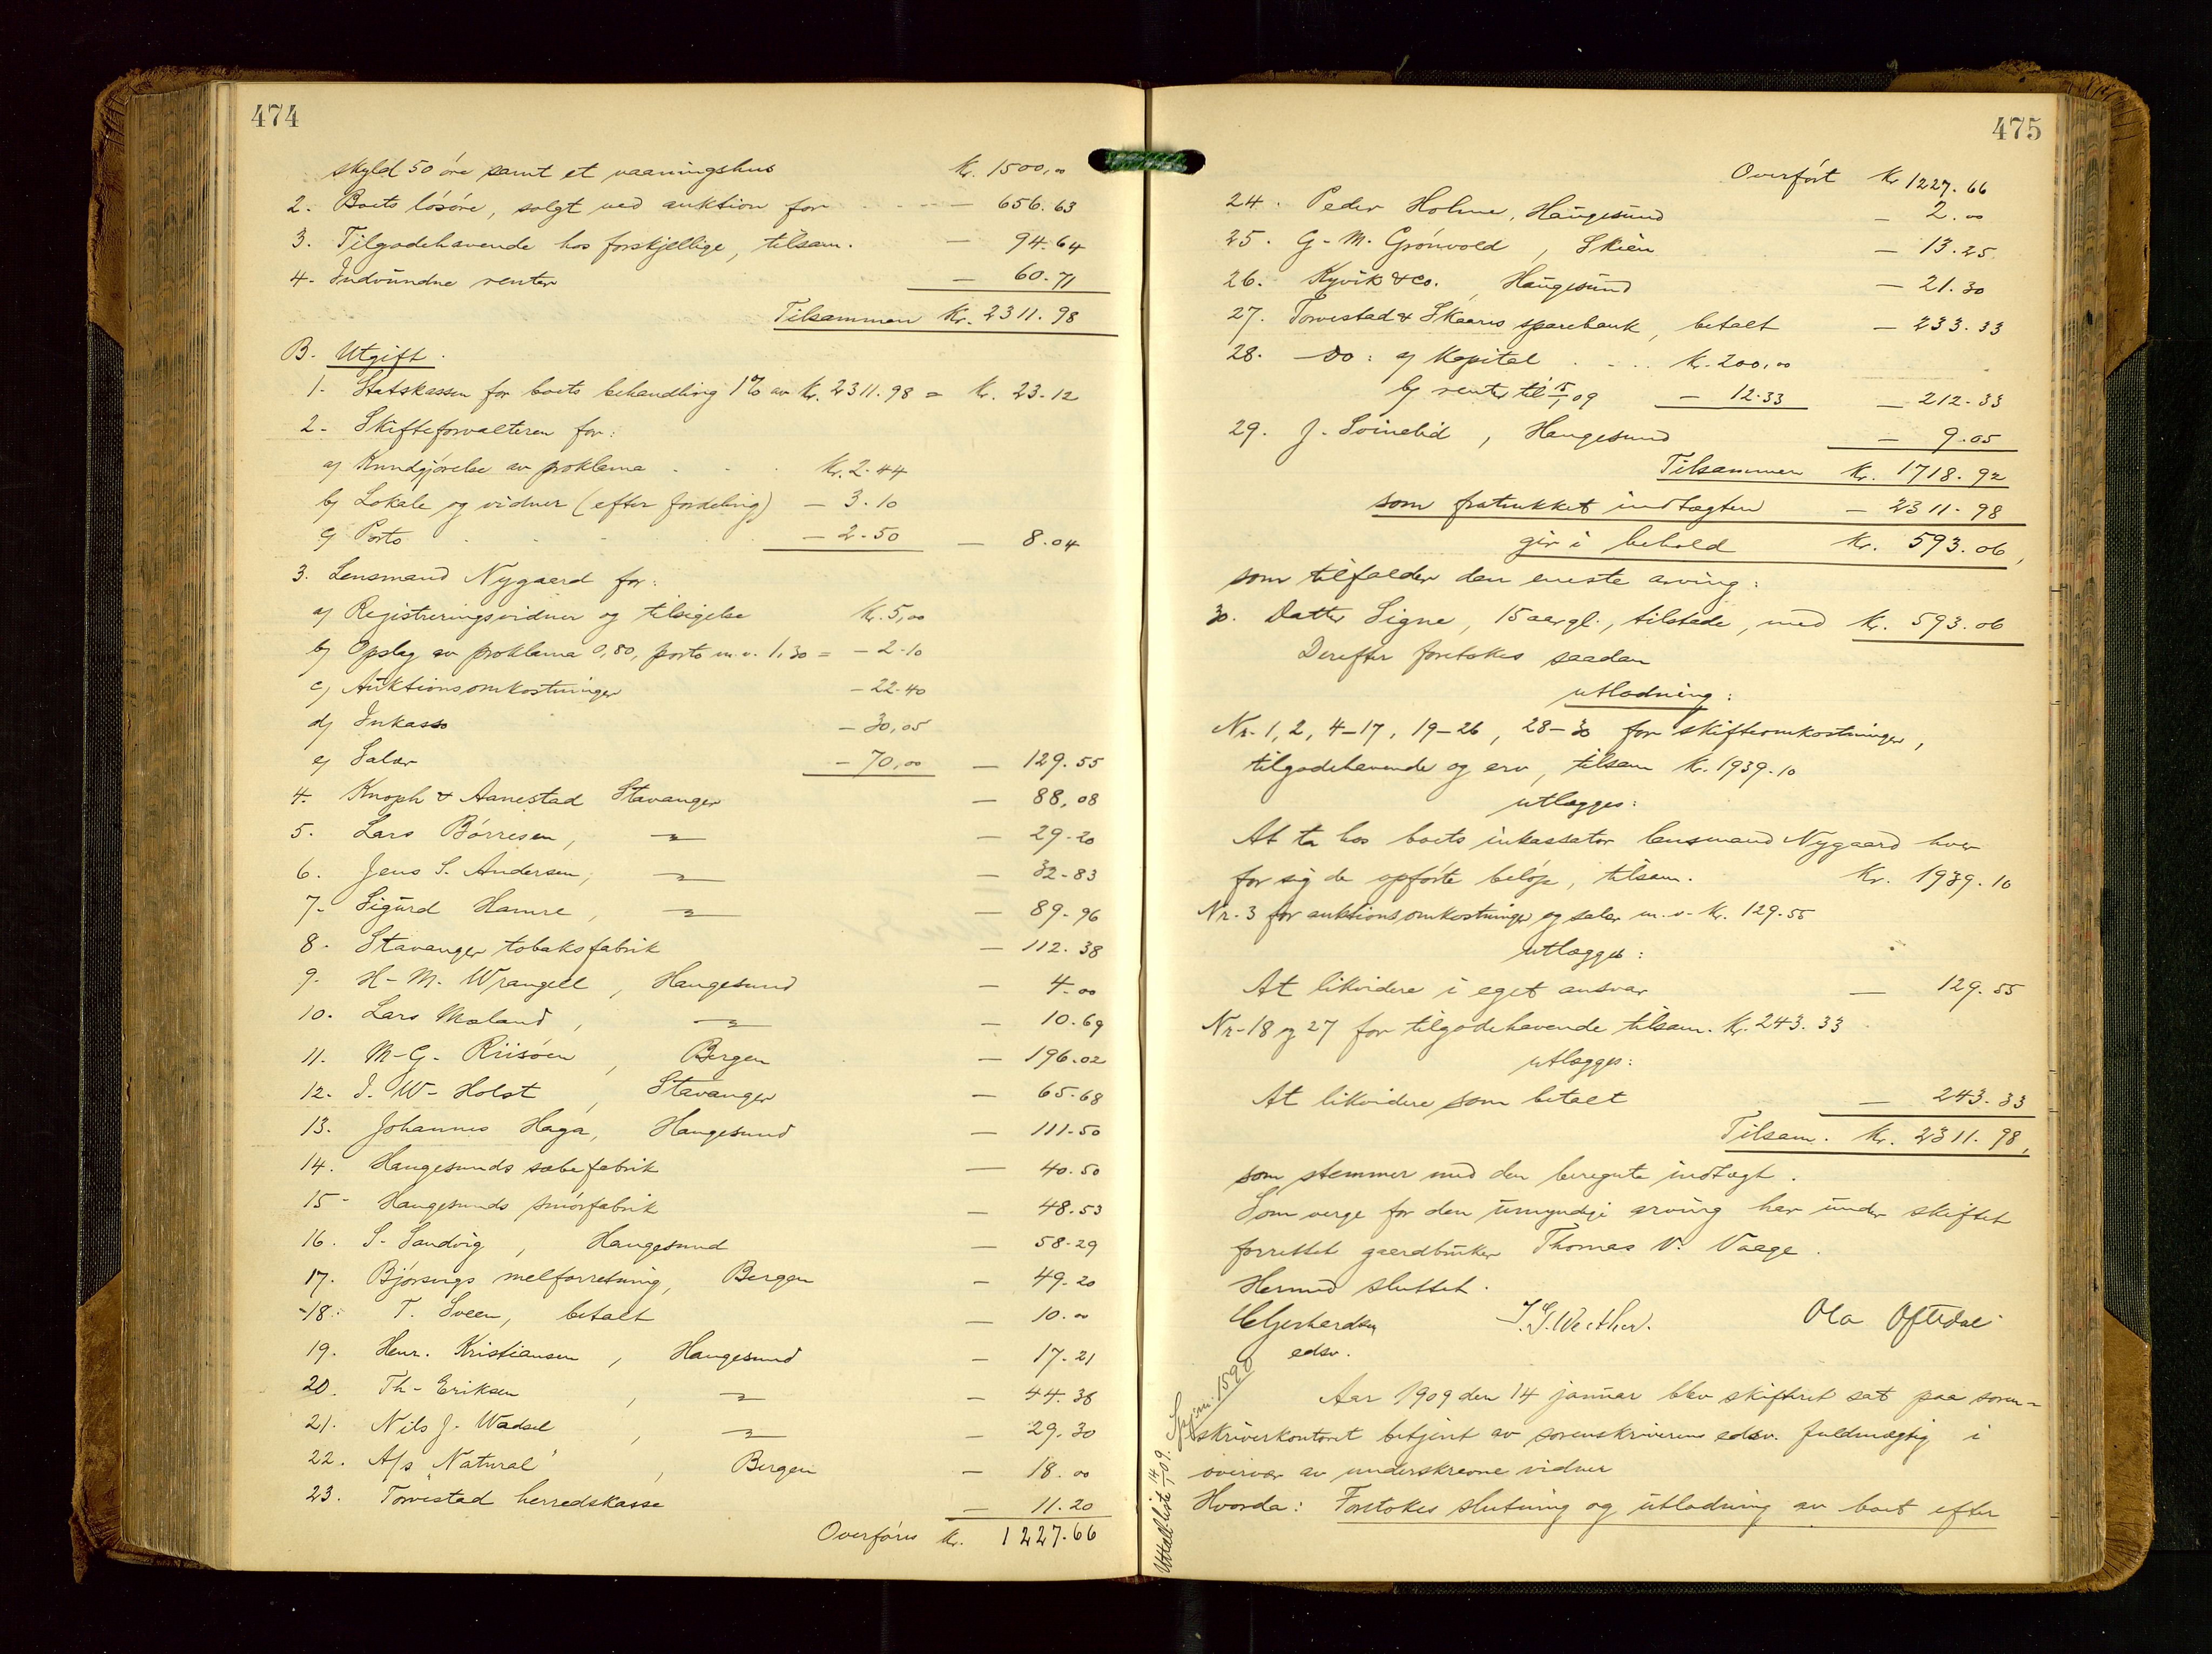 474
skyld 50 øre samt et vaaningshus Kr. 1500,00
2. Boets løsøre, solgt ved auktion for - - - — 656.63
3. Tilgodehavende hos forskjellige, tilsam. — 94.64
4. Indvundne renter — 60.71
Tilsammen Kr. 2311.98
B. Utgift.
1. Statskassen for boets behandling 1% av Kr. 2311.98 = Kr. 23.12
2. Skifteforvalteren for:
a) Kundgjørelse av proklama . . . Kr. 2.44
b) Lokale og vidner (efter fordeling) — 3.10
c) Porto . . . — 2.50 — 8.04
3. Lensmand Nygaard for:
a) Registreringsvidner og tilsigelse Kr. 5,00
b) Opslag av proklama 0,80, porto m.v. 1,30 = — 2.10
c) Auktionsomkostninger — 22.40
d) Inkasso — 30,05
e) Salær — 70,00 — 129.55
4. Knoph & Aanestad Stavanger — 88,08
5. Lars Børresen, —"— — 29.20
6. Jens S. Andersen, —"— — 32.83
7. Sigurd Hamre, —"— — 89.96
8. Stavanger tobaksfabrik — 112.38
9. H. M. Wrangell, Haugesund — 4.00
10. Lars Mæland, —"— — 10.69
11. M. G. Riisøen, Bergen — 196.02
12. I. W. Holst, Stavanger — 65.68
13. Johannes Haga, Haugesund — 111.50
14. Haugesunds sæbefabrik — 40.50
15. Haugesunds smørfabrik — 48.53
16. S. Sandvig, Haugesund — 58.29
17. Bjørsvigs melforretning, Bergen — 49.20
18. T. Sveen, betalt — 10.00
19. Henr. Kristiansen, Haugesund — 17.21
20. Th. Eriksen, —"— — 44.38
21. Nils J. Wadsel, —"— — 29.30
22. A/s "Natural", Bergen — 18.00
23. Torvestad herredskasse — 11.20
Overføres Kr. 1227.66
475
Overført Kr. 1227.66
24. Peder Holme, Haugesund — 2.00
25. G. M. Grønvold, Skien — 13.25
26. Kyvik & Co., Haugesund — 21.30
27. Torvestad & Skaares sparebank, betalt — 233.33
28. — Do: a) Kapital . . . . Kr. 200,00
b) renter til 15/1 09 — 12.33 — 212.33
29. J. Svinelid, Haugesund — 9.05
Tilsammen Kr. 1718.92
som fratrukket indtægten — 2311.98
gir i behold Kr. 593.06,
som tilfalder den eneste arving:
30. Datter Signe, 15 aar gl., tilstede, med Kr. 593.06
Derefter foretokes saadan
utlodning:
Nr. 1, 2, 4–17, 19–26, 28–30 for skifteomkostninger,
tilgodehavende og arv, tilsam Kr. 1939.10
utlægges:
At ta hos boets inkassator lensmand Nygaard hver
for sig de opførte beløp, tilsam. Kr. 1939.10
Nr. 3 for auktionsomkostninger og salær m.v. Kr. 129.55
utlægges:
At likvidere i eget ansvar — 129.55
Nr. 18 og 27 for tilgodehavende tilsam. Kr. 243.33
utlægges:
At likvidere som betalt — 243.33
Tilsam. Kr. 2311.98,
som stemmer med den beregnte indtægt.
Som verge for den umyndige arving har under skiftet
forrettet gaardbruker Thomas V. Vaage.
Hermed sluttet.
Gjerhardsen J. G. Wecther. Ola Oftedal
edsv.
Aar 1909 den 14 januar blev skifteret sat paa soren-
skriverkontoret betjent av sorenskriverens edsv. fuldmægtig i
overvær av underskrevne vidner
Hvorda: Foretokes slutning og utlodning av boet efter
Utlodl. liste 14/1 09.